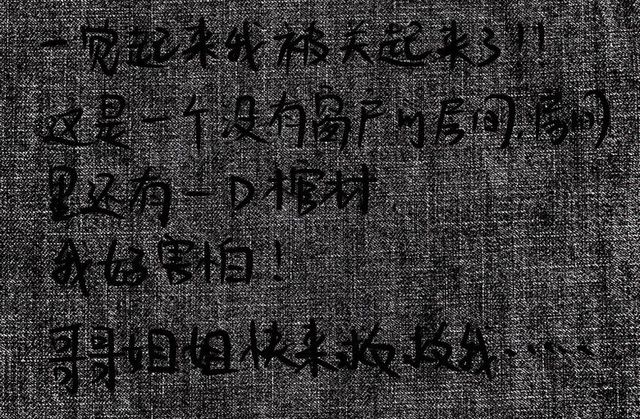 一觉起来我被关起来了!!
这是一个没有窗户的房间,房间
里还有一口棺材.
我好害怕!
哥哥姐姐快来救救我......